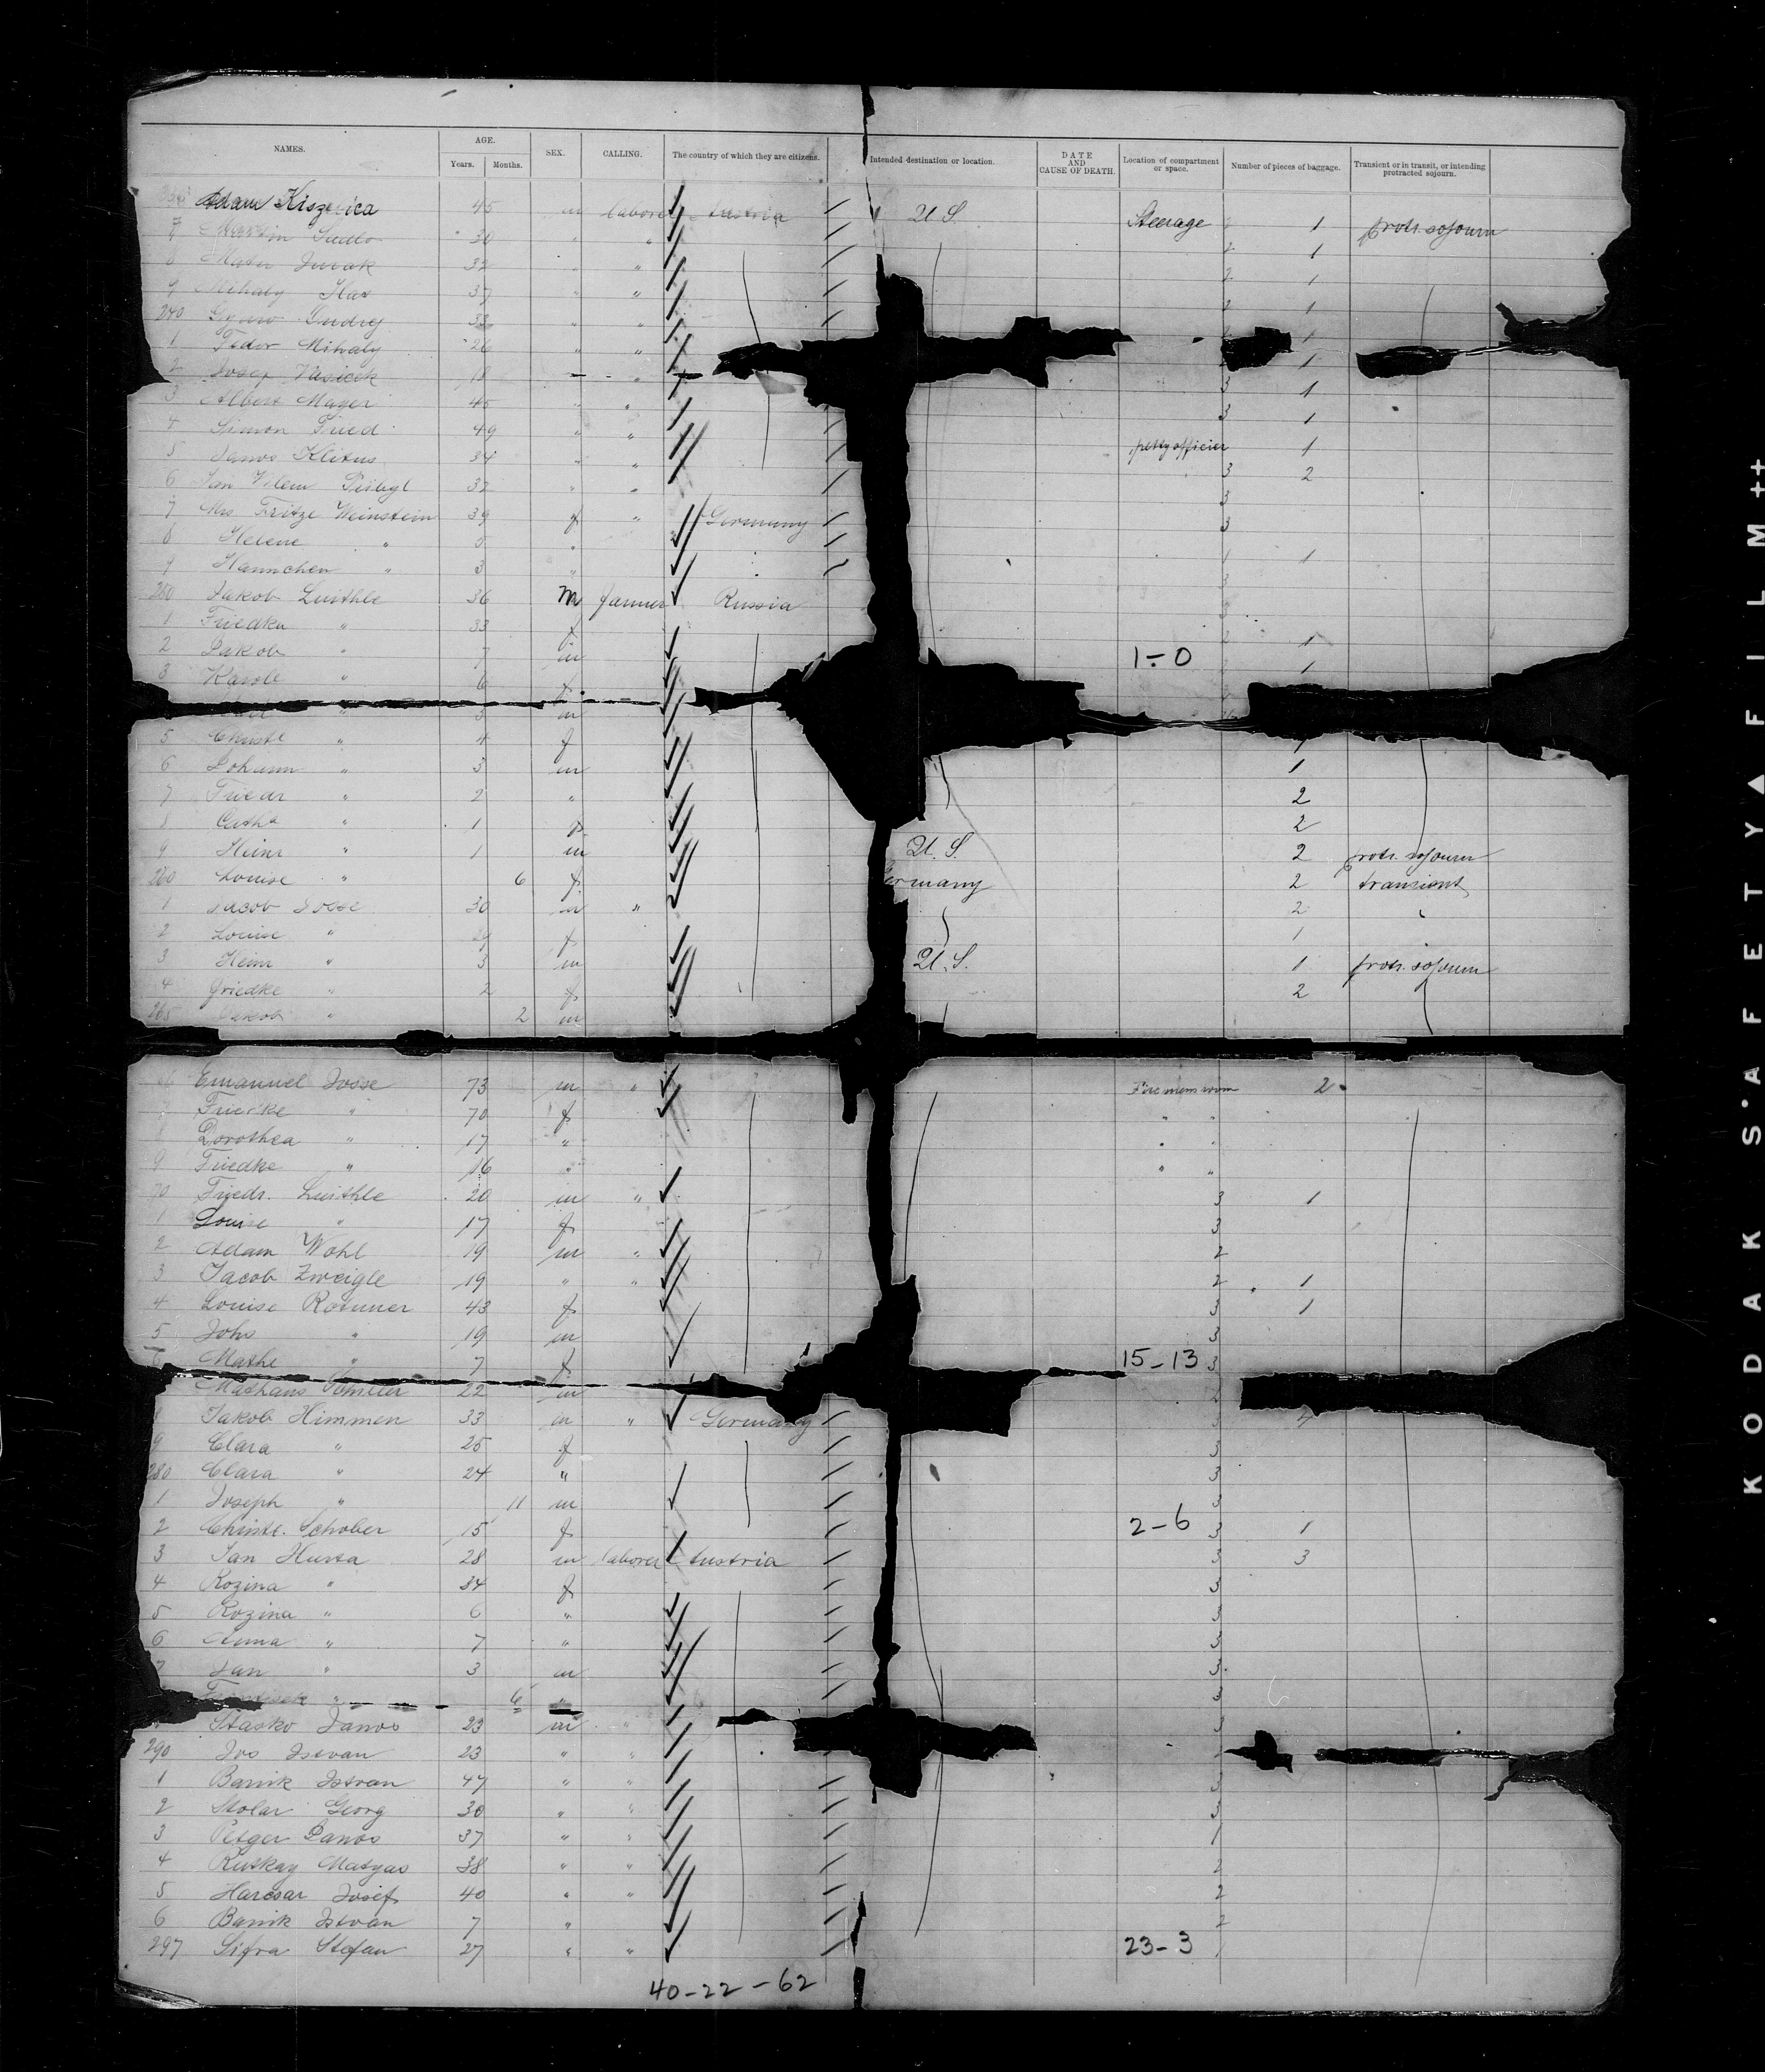 NAMES. AGE. SEX. CALLING. The country of which they are citizens. Intended destination or location. DATE AND CAUSE OF DEATH. Location of compartment or space. Number of pieces of baggage. Transient or in transit, or intending protracted sojourn.
Years. Months.
Adam 45 m laborer Austria U S. Steerage 2 1 protr. sojourn
7 30 " " 2 1
8 32 " " 2 1
9 Mihaly 37 " " 2 1
240 33 " " 1
1 Fedor Mihaly 26 " " 1
2 Josef 18 " 3 1
3 Albert Mayer 45 " " 3 1
4 Simon Fried 49 " " petty officier 1
5 Janos Klitus 34 " " 3 2
6 Jan Vilem 32 " " 3
7 Mrs Fritze Weinstein 39 f " Germany 3
8 Helene " 5 " 1 1
9 Hannchen " 3 " 3
250 Jakob Luithle 36 m farmer Russia 3
1 Friedke " 33 f 2 1
2 Jakob " 7 m 1-0 1
3 Karole " 6 f
" 3 m
5 Christe " 4 f 1
6 Johann " 3 m 1
7 Friedr " 2 " 2
8 " 1 f 2
9 Heinr " 1 m U. S. 2 protr. sojourn
260 Louise " 6 f Germany 2 transient
1 Jacob Josse 30 m " 2 "
2 Louise " 29 f 1
3 Heinr " 3 m U. S. 1 protr. sojourn
4 Friedke " 2 f 2
265 Jakob " 2 m
6 Emanuel Josse 73 m " Firemens room 2
7 Friedke " 70 f " "
8 Dorothea " 17 " " "
9 Friedke " 16 " " "
70 Friedr. Luithle 20 m " 3 1
1 Louise " 17 f 3
2 Adam Wohl 19 m " 2
3 Jacob Zweigle 19 " " 2 1
4 Louise Rotmer 43 f 3 1
5 Johs " 19 m 3
6 Mathe " 7 f 15-13 3
Mathaus 22 m 2
8 Jakob Himmen 33 m " Germany 3 4
9 Clara " 25 f 3
280 Clara " 24 " 3
1 Joseph " 11 m 3
2 Christe. Schober 15 f 2-6 3 1
3 Jan Hursa 28 m laborer Austria 3 3
4 Rozina " 34 f 3
5 Rozina " 6 " 3
6 Anna " 7 " 3
7 Jan " 3 m 3
Frantisek " 6 " 3
Stasko Janos 23 m " 3
290 Jos Istvan 23 " "
1 Banik Istvan 47 " " 3
2 Stolar Georg 30 " " 3
3 Petger Janos 37 " " 1
4 Rutkay Matyas 38 " " 2
5 Harcsar Josef 40 " " 2
6 Banik Istvan 7 " 2
297 Sifra Stefan 27 " " 23-3 1
40-22-62
KODAK S'AFETY FILM ++